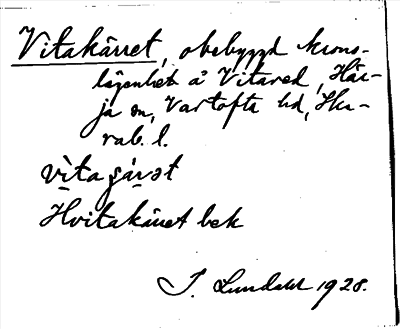 Vitakärret, obebyggd krono-
lägenhet å Vitared, Här-
ja sn, Vartofta hd, Ska-
rab. l.
vìta ɕärət
Hvitakärret bek
I. Lundahl 1928.